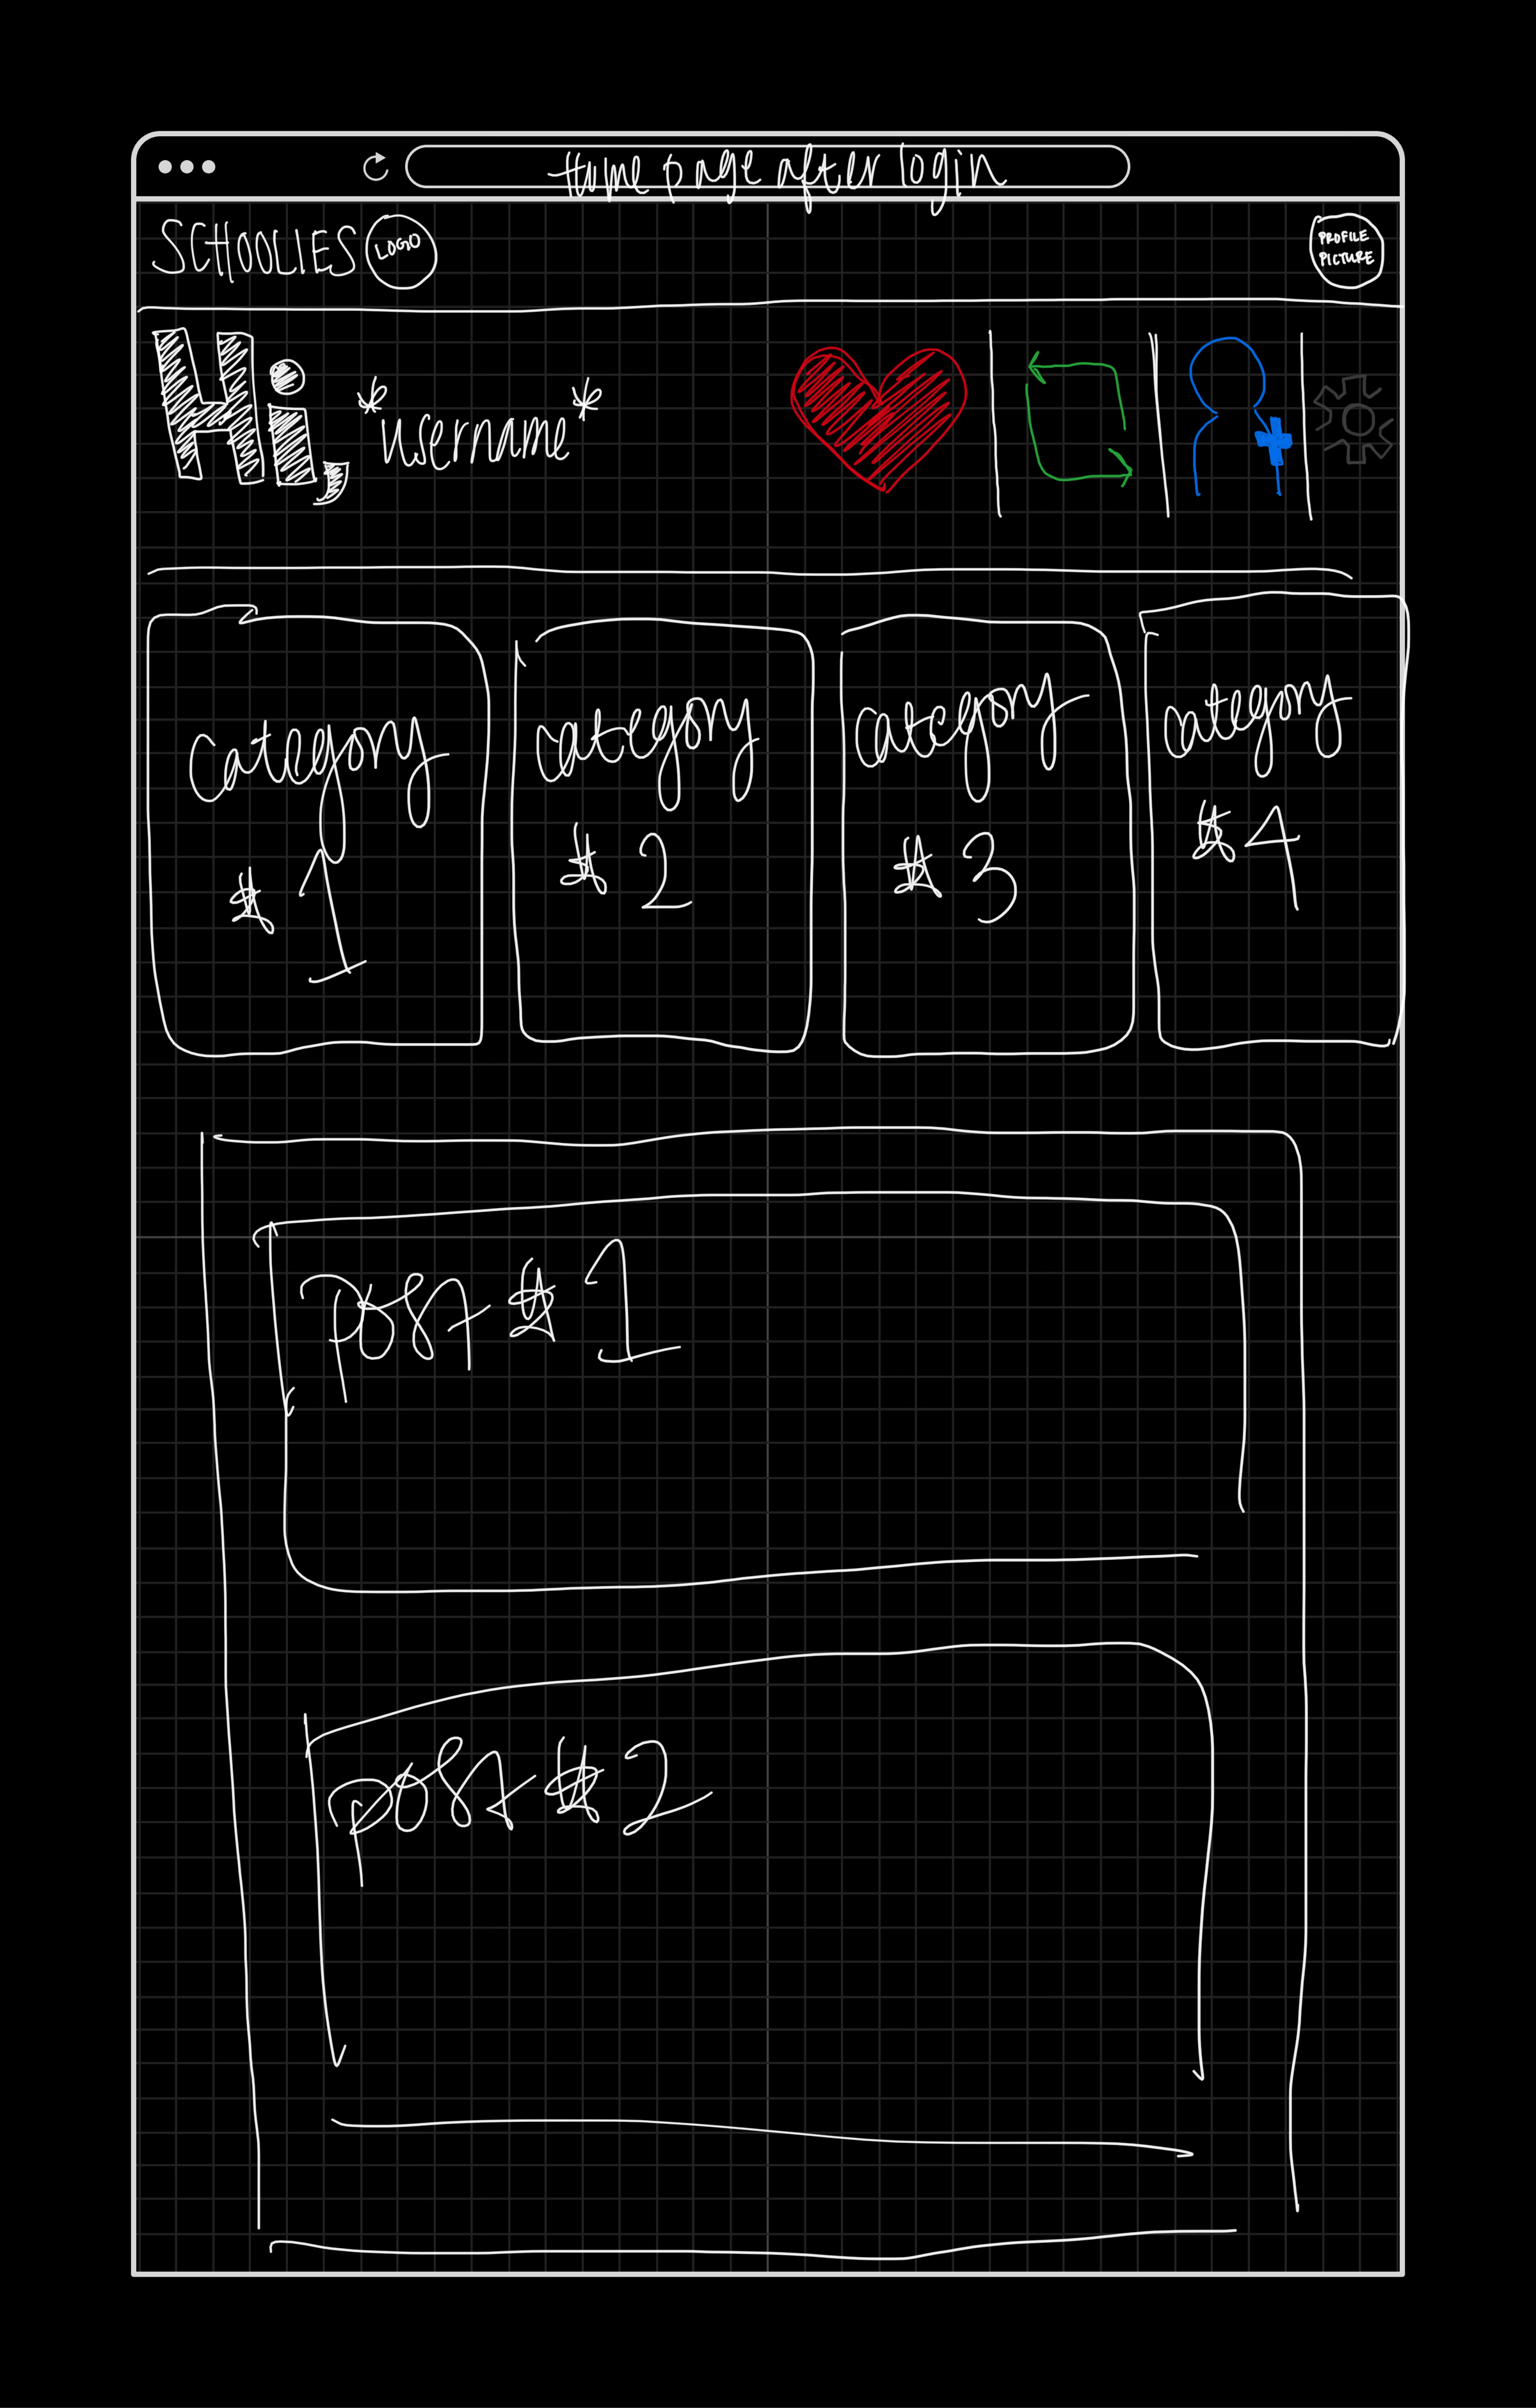 Home page after login
SCHOOLIES LOGO
PROFILE
PICTURE
Hi, *username*
category
# 1
category
# 2
category
# 3
category
# 4
Post # 1
post # 2